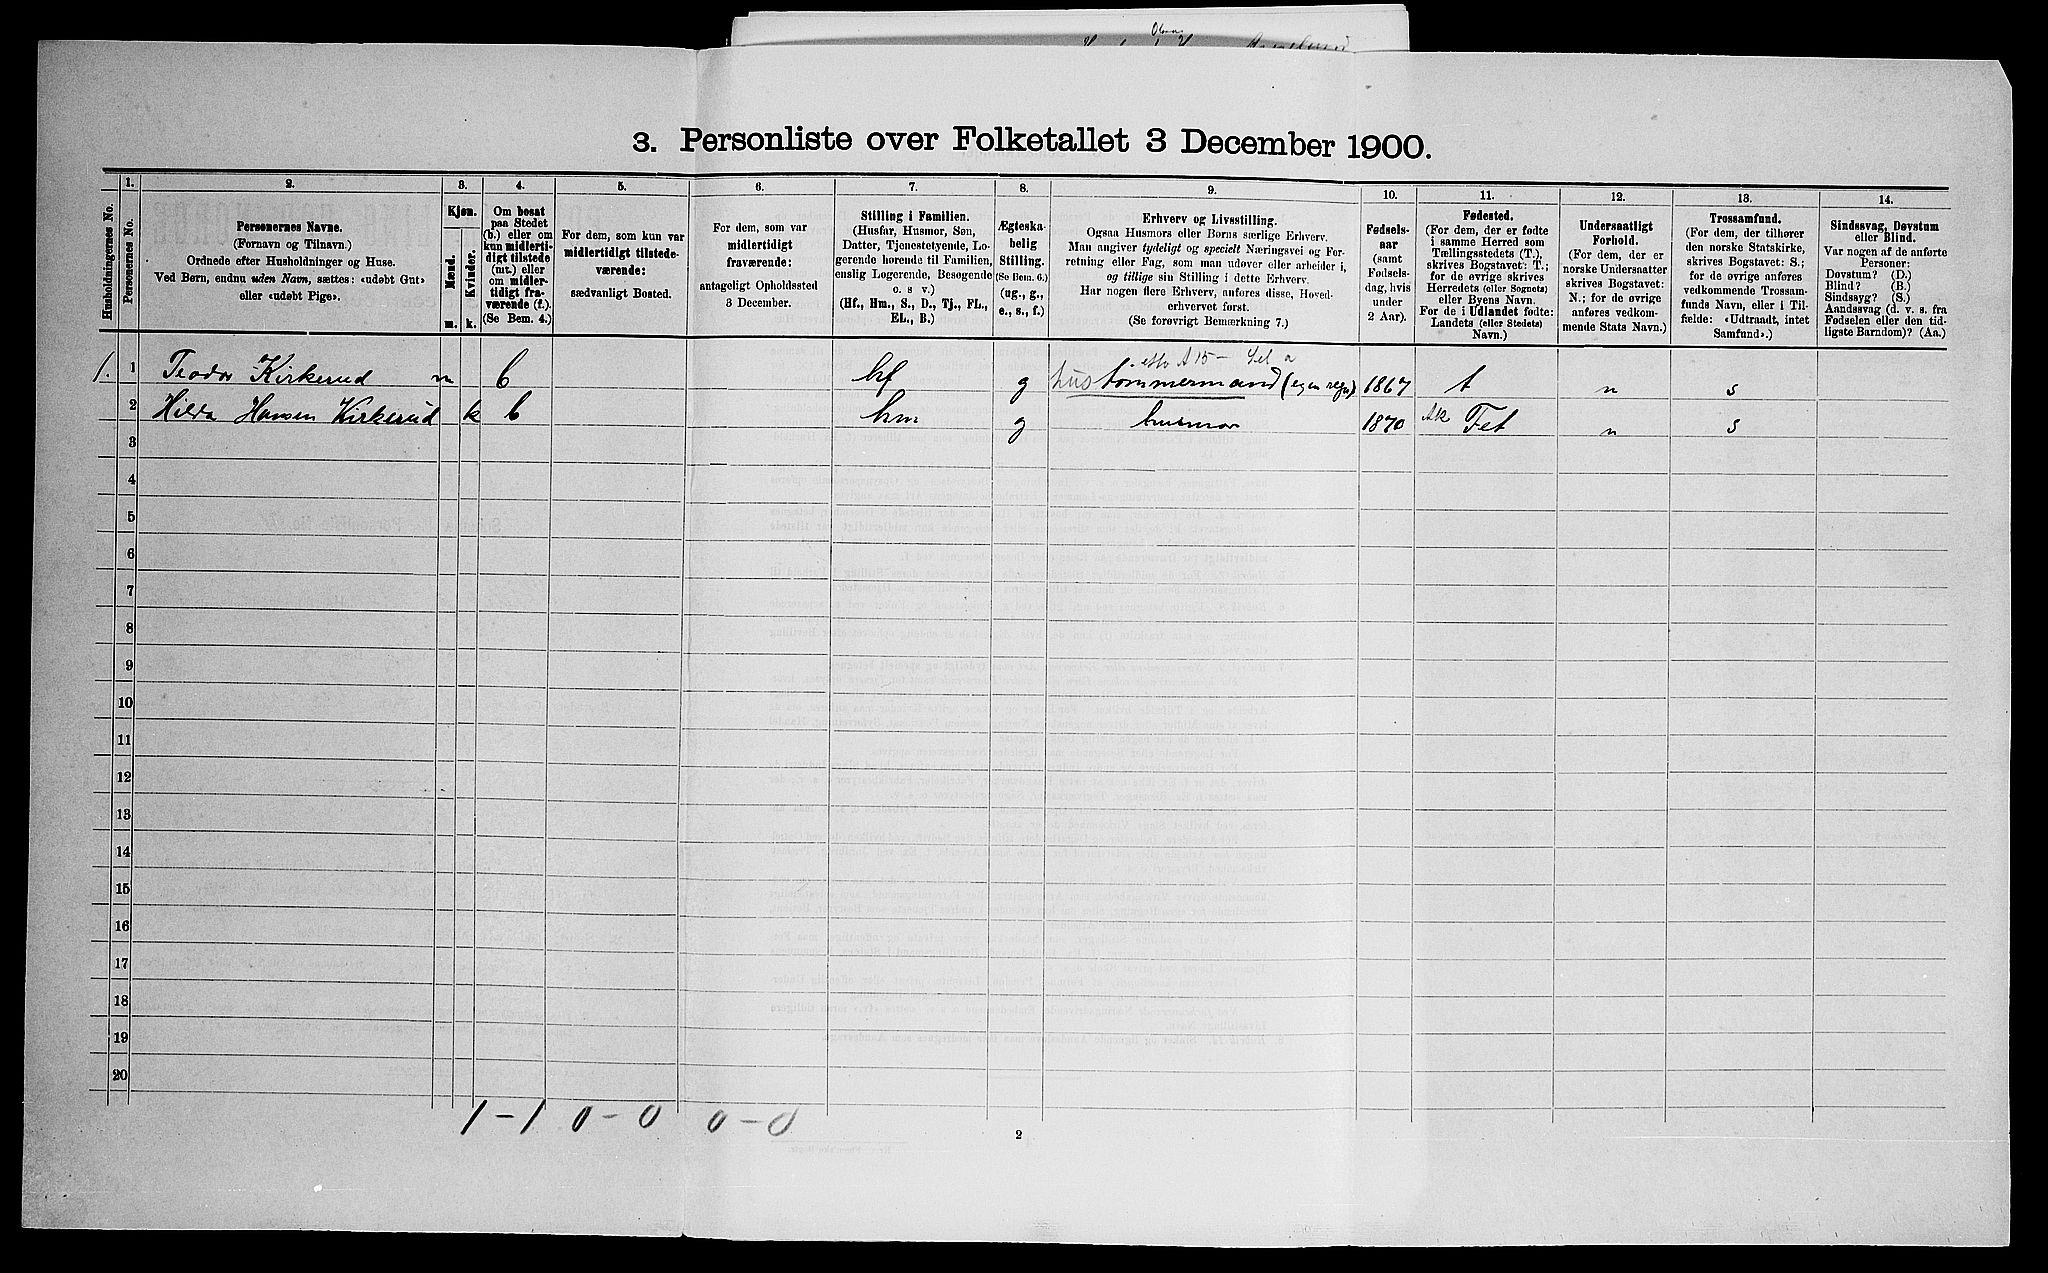 3. Personliste over Folketallet 3 December 1900.
1. 2. 3. 4. 5. 6. 7. 8. 9. 10. 11. 12. 13. 14.
Husholdningernes No.
Personernes No.
Personernes Navne.
(Fornavn og Tilnavn.)
Ordnede efter Husholdninger og Huse.
Ved Børn, endnu uden Navn, sættes: «udøbt Gut»
eller «udøbt Pige».
Kjøn.
Mænd.
Kvinder.
m. k.
Om bosat
paa Stedet
(b.) eller om
kun midlerti-
digt tilstede
(mt.) eller
om midler-
tidigt fra-
værende (f.).
(Se Bem. 4.)
For dem, som kun var
midlertidigt tilstede-
værende:
sædvanligt Bosted.
For dem, som var
midlertidigt
fraværende:
antageligt Opholdssted
3 December.
Stilling i Familien.
(Husfar, Husmor, Søn,
Datter, Tjenestetyende, Lo-
gerende hørende til Familien,
enslig Logerende, Besøgende
o. s v.)
(Hf., Hm., S., D., Tj., FL.,
EL., B.)
Ægteska-
belig
Stilling.
(Se Bem. 6.)
(ug., g.,
e., s., f.)
Erhverv og Livsstilling.
Ogsaa Husmors eller Børns særlige Erhverv.
Man angiver tydeligt og specielt Næringsvei og For-
retning eller Fag, som man udøver eller arbeider i,
og tillige sin Stilling i dette Erhverv.
Har nogen flere Erhverv, anføres disse, Hoved-
erhvervet først.
(Se forøvrigt Bemærkning 7.)
Fødsels-
aar
(samt
Fødsels-
dag, hvis
under
2 Aar).
Fødested.
(For dem, der er fødte
i samme Herred som
Tællingsstedets (T.),
skrives Bogstavet: T.;
for de øvrige skrives
Herredets (eller Sognets)
eller Byens Navn.
For de i Udlandet fødte:
Landets (eller Stedets)
Navn.)
Undersaatligt
Forhold.
(For dem, der er
norske Undersaatter
skrives Bogstavet:
N.; for de øvrige
anføres vedkom-
mende Stats Navn.)
Trossamfund.
(For dem, der tilhører
den norske Statskirke,
skrives Bogstavet: S.;
for de øvrige anføres
vedkommende Trossam-
funds Navn, eller i Til-
fælde: «Udtraadt, intet
Samfund».)
Sindssvag, Døvstum
eller Blind.
Var nogen af de anførte
Personer:
Døvstum? (D.)
Blind? (B.)
Sindssyg? (S.)
Aandssvag (d. v. s. fra
Fødselen eller den tid-
ligste Barndom)? (Aa.)
1. 1 Teodor Kirkerud m b hf g hus tømmermand (egen regn) 1867 t n s
2 Hilda Hansen Kirkerud k b hm g husmor 1870 Ak Fet n s
3
4
5
6
7
8
9
10
11
12
13
14
15
16
17
18
19
20
1-1 0-0 0-0
2